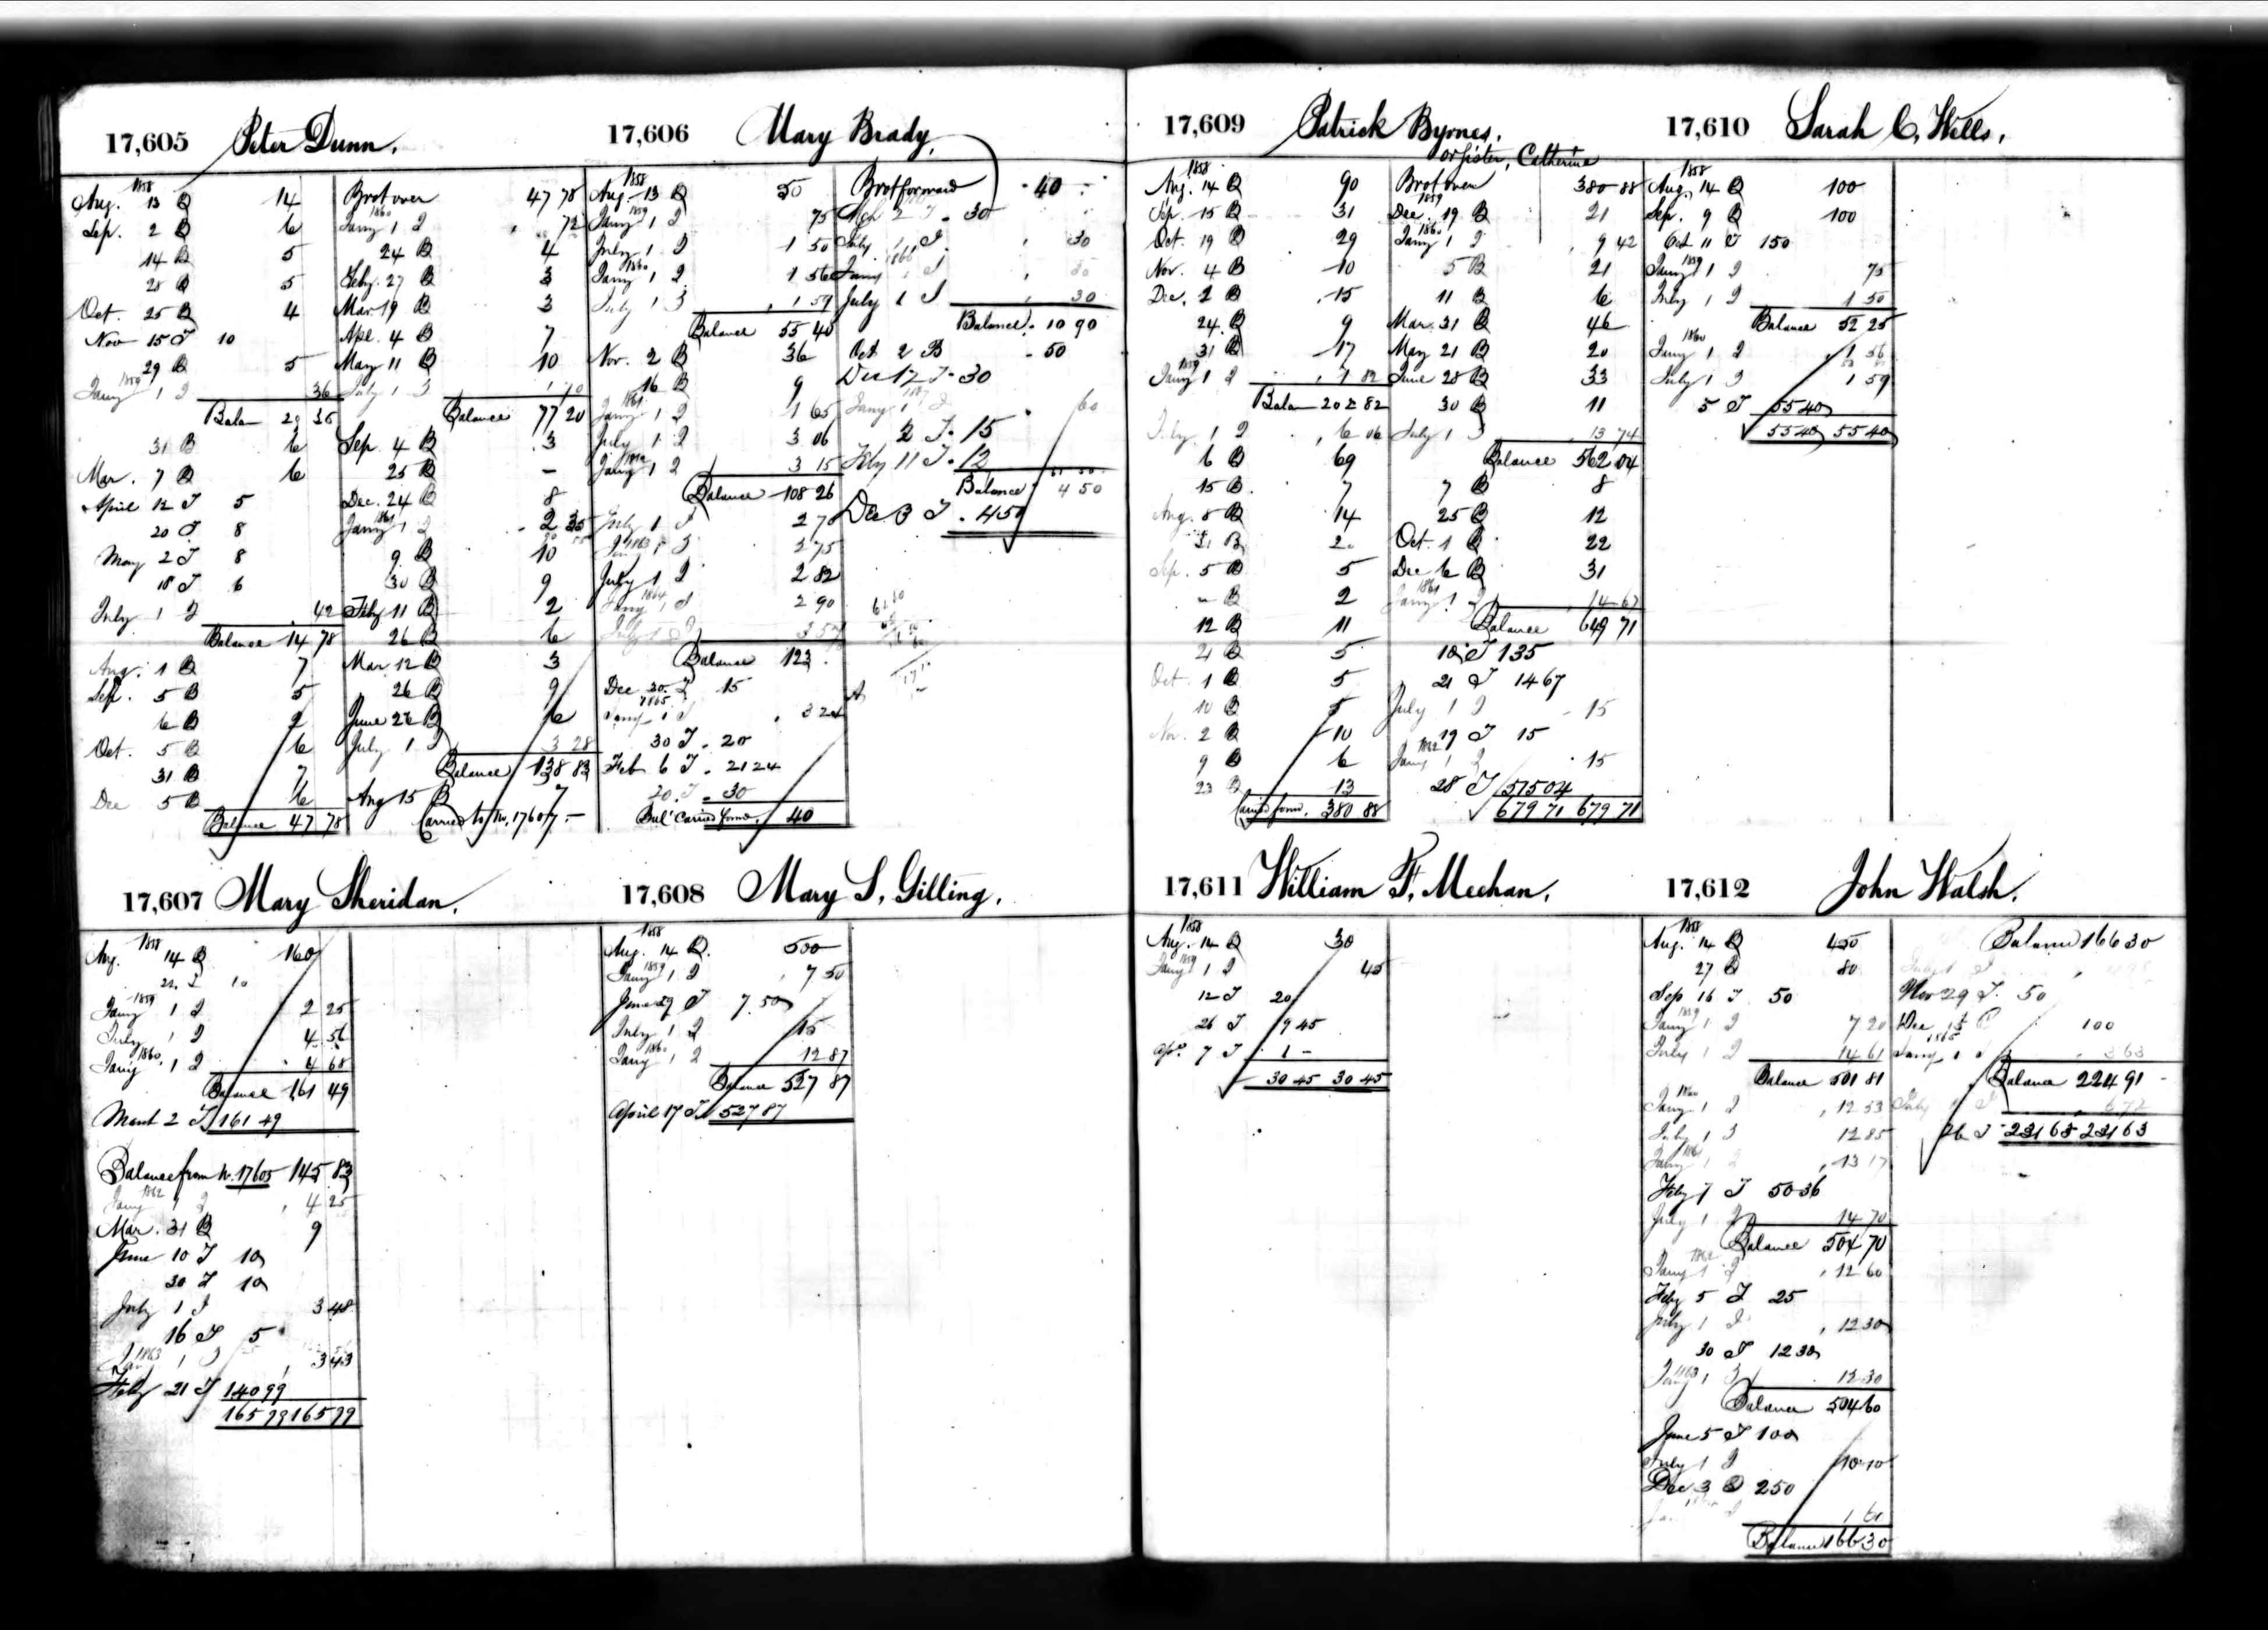 17,605 Peter Dunn.
1858
Aug. 13 B 14
Sep. 2 B 6
14 B 5
28 B 5
Oct. 25 B 4
Nov 15 T 10
29 B 5
1859
Jany 1 I 36
Balan 29 36
31 B 6
Mar. 7 B 6
April 12 T 5
20 T 8
May 2 T 8
18 T 6
July 1 I 42
Balance 14 78
Aug. 1 B 7
Sep. 5 B 5
6 B 2
Oct. 5 B 6
31 B 7
Dec 5 B 6
Balance 47 78
Brot over 47 78
1860
Jany 1 I 72
24 B 4
Feby. 27 B 3
Mar. 19 B 3
Apl. 4 B 7
May 11 B 10
July 1 I
Balance 77 20
Sep. 4 B 3
25 B
Dec. 24 B 8
1861
Jany 1 I 2 35
9 B 10
30 B 9
Feby 11 B 2
26 B 6
Mar. 12 B 3
26 B 9
June 26 B 6
July 1 I 3 28
Balance 138 83
Aug 15 B 7
Carried to No. 17607.
17,606 Mary Brady.
1858
Aug. 13 B 50
1859
Jany 1 I 75
July 1 I 1 50
1860
Jany 1 I 1 56
July 1 I 1 59
Balance 55 40
Nov. 2 B 36
16 B 9
1861
Jany 1 I 1 65
July 1 I 3 06
Jany 1 I 3 15
Balance 108 26
July 1 I 2 70
1863
Jany 1 I 2 75
July 1 I 2 82
1864
Jany 1 I 2 90
July 1 I 3 57
Balance 123
Dec 20. T 15
1865
Jany 1 I 3 24
30 T 20
Feb 6 T 21 24
20. T 30
Bal. Carried forwd. 40
Brot forward 40
May 2 T 30
July 1 I 30
1866
Jany 1 I
July 1 I 30
Balance 10 90
Oct 2 B 50
Dec 12 T 30
1867
Jany 1 I 60
2 T 15
Feby 11 T 12
Balance 4 50
Dec 3 T 4 50
17,609 Patrick Byrnes.
or sister, Catherine
1858
Aug. 14 B 90
Sep. 15 B 31
Oct. 19 B 29
Nov. 4 B 10
Dec. 2 B 15
24 B 9
31 B 17
1859
Jany 1 I 1 82
Balan 202 82
July 1 I 6 06
6 B 69
15 B 7
Aug. 8 B 14
31 B
Sep. 5 B 5
B 2
12 B 11
21 B 5
Oct. 1 B 5
10 B 5
Nov. 2 B 10
9 B 6
23 B 13
Carried forw. 380 88
Brot over 380 88
1859
Dec. 19 B 21
1860
Jany 1 I 9 42
5 B 21
11 B 6
Mar. 31 B 46
May 21 B 20
June 28 B 33
30 B 11
July 1 I 13 74
Balance 562 04
7 B 8
25 B 12
Oct. 1 B 22
Dec 6 B 31
1861
Jany 1 I 14 67
Balance 649 71
18 T 135
21 T 14 67
July 1 I 15
19 T 15
1862
Jany 1 I 15
28 T 515 04
679 71 679 71
17,610 Sarah C. Wells.
1858
Aug. 14 B 100
Sep. 9 B 100
Oct 11 T 150
1859
Jany 1 I 75
July 1 I 1 50
Balance 52 25
1860
Jany 1 I 1 56
July 1 I 1 59
5 T 55 40
55 40 55 40
17,607 Mary Sheridan.
1858
Aug. 14 B 160
T 10
1859
Jany 1 I 2 25
July 1 I 4 56
1860
Jany 1 I 4 68
Balance 161 49
March 2 T 161 49
Balance from No. 17605 145 83
1862
Jany 1 I 4 25
Mar. 31 B 9
June 10 T 10
30 T 10
July 1 I 3 48
16 T 5
1863
Jany 1 I 3 43
Feby 21 T 140 99
165 99 165 99
17,608 Mary S. Gilling.
1858
Aug. 14 B. 500
1859
Jany 1 I 7 50
June 29 T 7 50
July 1 I 15
1860
Jany 1 I 12 87
Balance 527 87
April 17 T 527 87
17,611 William F. Meehan.
1858
Aug. 14 B 30
1859
Jany 1 I 45
12 T 20
26 T 9 45
Apr. 7 T 1 -
30 45 30 45
17,612 John Walsh.
1858
Aug. 14 B 450
27 B 80
Sep 16 T 50
1859
Jany 1 I 7 20
July 1 I 14 61
Balance 501 81
1860
Jany 1 I 12 53
July 1 I 12 85
1861
Jany 1 I 13 17
Feby 7 T 50 36
July 1 I 14 70
Balance 504 70
1862
Jany 1 I 12 60
Feby 5 T 25
July 1 I 12 30
30 T 12 30
1863
Jany 1 I 12 30
Balance 504 60
June 5 T 100
July 1 I 10 10
Dec 3 T 250
Balance 166 30
Balance 166 30
July 1 I
Nov 29 T 50
Dec 100
1865
Jany 1 I 3 63
Balance 224 91
July 1 I 6 72
26 T 231 63 231 63